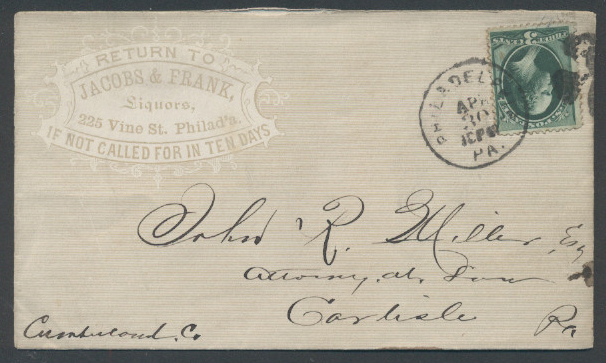 RETURN TO
JACOBS & FRANK,
Liquors,
225 Vine St. Philad'a.
IF NOT CALLED FOR IN TEN DAYS
PHILADEL
APR
30
PA.
John R. Miller, Esq
Attorney at Law
Carlisle Pa
Cumberland. Co